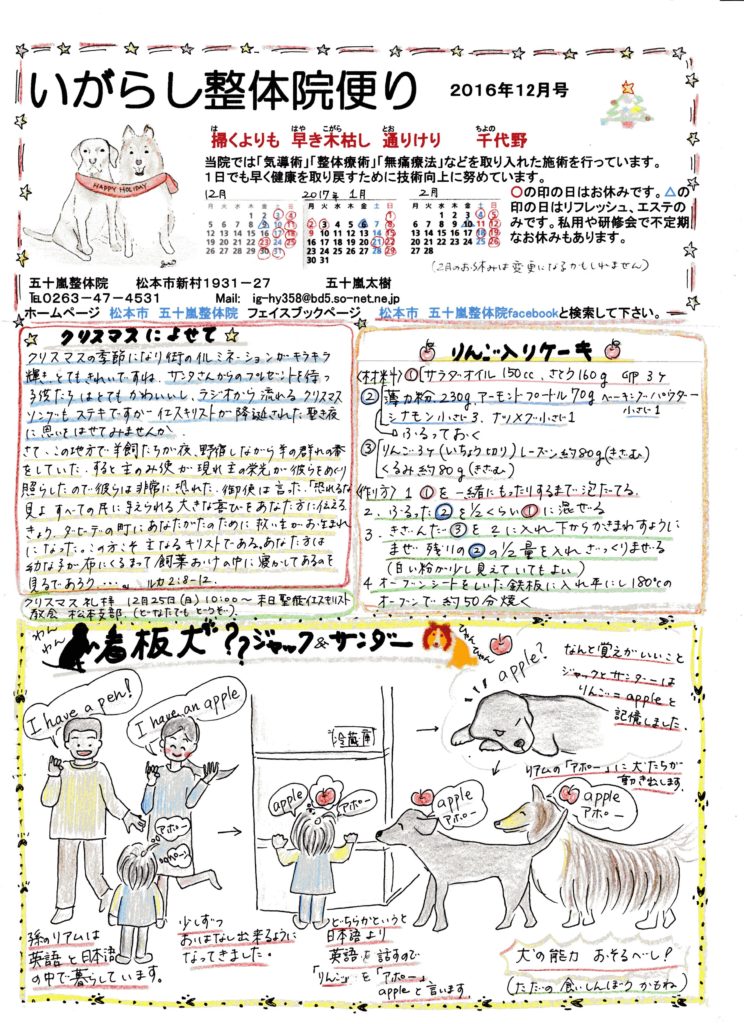 いがらし整体院便り 2016年12月号
掃くよりも 早き木枯し 通りけり 千代野
は はや こがら とお ちよの
当院では「気導術」「整体療術」「無痛療法」などを取り入れた施術を行っています。
1日でも早く健康を取り戻すために技術向上に努めています。
HAPPY HOLIDAY
12月
月 火 水 木 金 土 日
1 2 3 4
5 6 7 8 9 10 11
12 13 14 15 16 17 18
19 20 21 22 23 24 25
26 27 28 29 30 31
2017年 1月
月 火 水 木 金 土 日
1
2 3 4 5 6 7 8
9 10 11 12 13 14 15
16 17 18 19 20 21 22
23 24 25 26 27 28 29
30 31
2月
月 火 水 木 金 土 日
1 2 3 4 5
6 7 8 9 10 11 12
13 14 15 16 17 18 19
20 21 22 23 24 25 26
27 28
○の印の日はお休みです。△の
印の日はリフレッシュ、エステの
みです。私用や研修会で不定期
なお休みもあります。
(2月のお休みは変更になるかもしれません)
五十嵐整体院 松本市新村1931-27 五十嵐太樹
℡0263-47-4531 Mail: ig-hy358@bd5.so-net.ne.jp
ホームページ 松本市 五十嵐整体院 フェイスブックページ 松本市 五十嵐整体院facebookと検索して下さい。
クリスマスによせて
クリスマスの季節になり街のイルミネーションがキラキラ
輝き、とてもきれいですね。サンタさんからのプレゼントを待つ
子供たちはとてもかわいいし、ラジオから流れるクリスマス
ソングもステキですが、イエスキリストが降誕された聖き夜
に思いをはせてみませんか。
さて、この地方で羊飼たちが夜、野宿しながら羊の群れの番
をしていた。すると主のみ使が現れ主の栄光が彼らをめぐり
照らしたので彼らは非常に恐れた。御使は言った「恐れるな
見よ すべての民に与えられる大きな喜びをあなた方に伝える
きょう、ダビデの町にあなたがたのために救い主がお生まれ
になった。この方こそ主なるキリストである。あなた方は
幼な子が布にくるまって飼葉おけの中に寝かしてあるのを
見るであろう・・・。 ルカ2:8-12
クリスマス礼拝 12月25日(日) 10:00~ 末日聖徒イエスキリスト
教会 松本支部 (どなたでもどうぞ)
りんご入りケーキ
〈材料〉 ① サラダーオイル 150cc、さとう160g 卵 3ヶ
② 薄力粉 230g、アーモンドプードル 70g ベーキングパウダー
小さじ1
シナモン小さじ3、ナツメグ小さじ1
ふるっておく
③ りんご3ヶ(いちょう切り) レーズン約80g(きざむ)
くるみ約80g(きざむ)
〈作り方〉 1 ①を一緒にもったりするまで泡だてる。
2. ふるった②を1/2くらい①に混ぜる
3. きざんだ③を2に入れ下からかきまわすように
まぜ 残りの②の1/2量を入れざっくりまぜる
(白い粉が少し見えていてもよい)
4 オーブンシートをしいた鉄板に入れ平にし180℃の
オーブンで約50分焼く
わんわん
看板犬??ジャック&サンダー
ひゃんひゃん
I have a pen!
I have an apple
アポー
apple
アポー
冷蔵庫
apple?
なんと覚えがいいこと
ジャックとサンダーは
りんご=appleと
記憶しました。
リアムの「アポー」に犬たちが
動き出します。
apple
アポー
apple
アポー
孫のリアムは
英語と日本語
の中で暮らしています。
少しずつ
おはなし出来るように
なってきました。
どちらかというと
日本語より
英語を話すので
「りんご」を「アポー」、
appleと言います。
犬の能力 おそるべし!
(ただの食いしんぼうかもね)